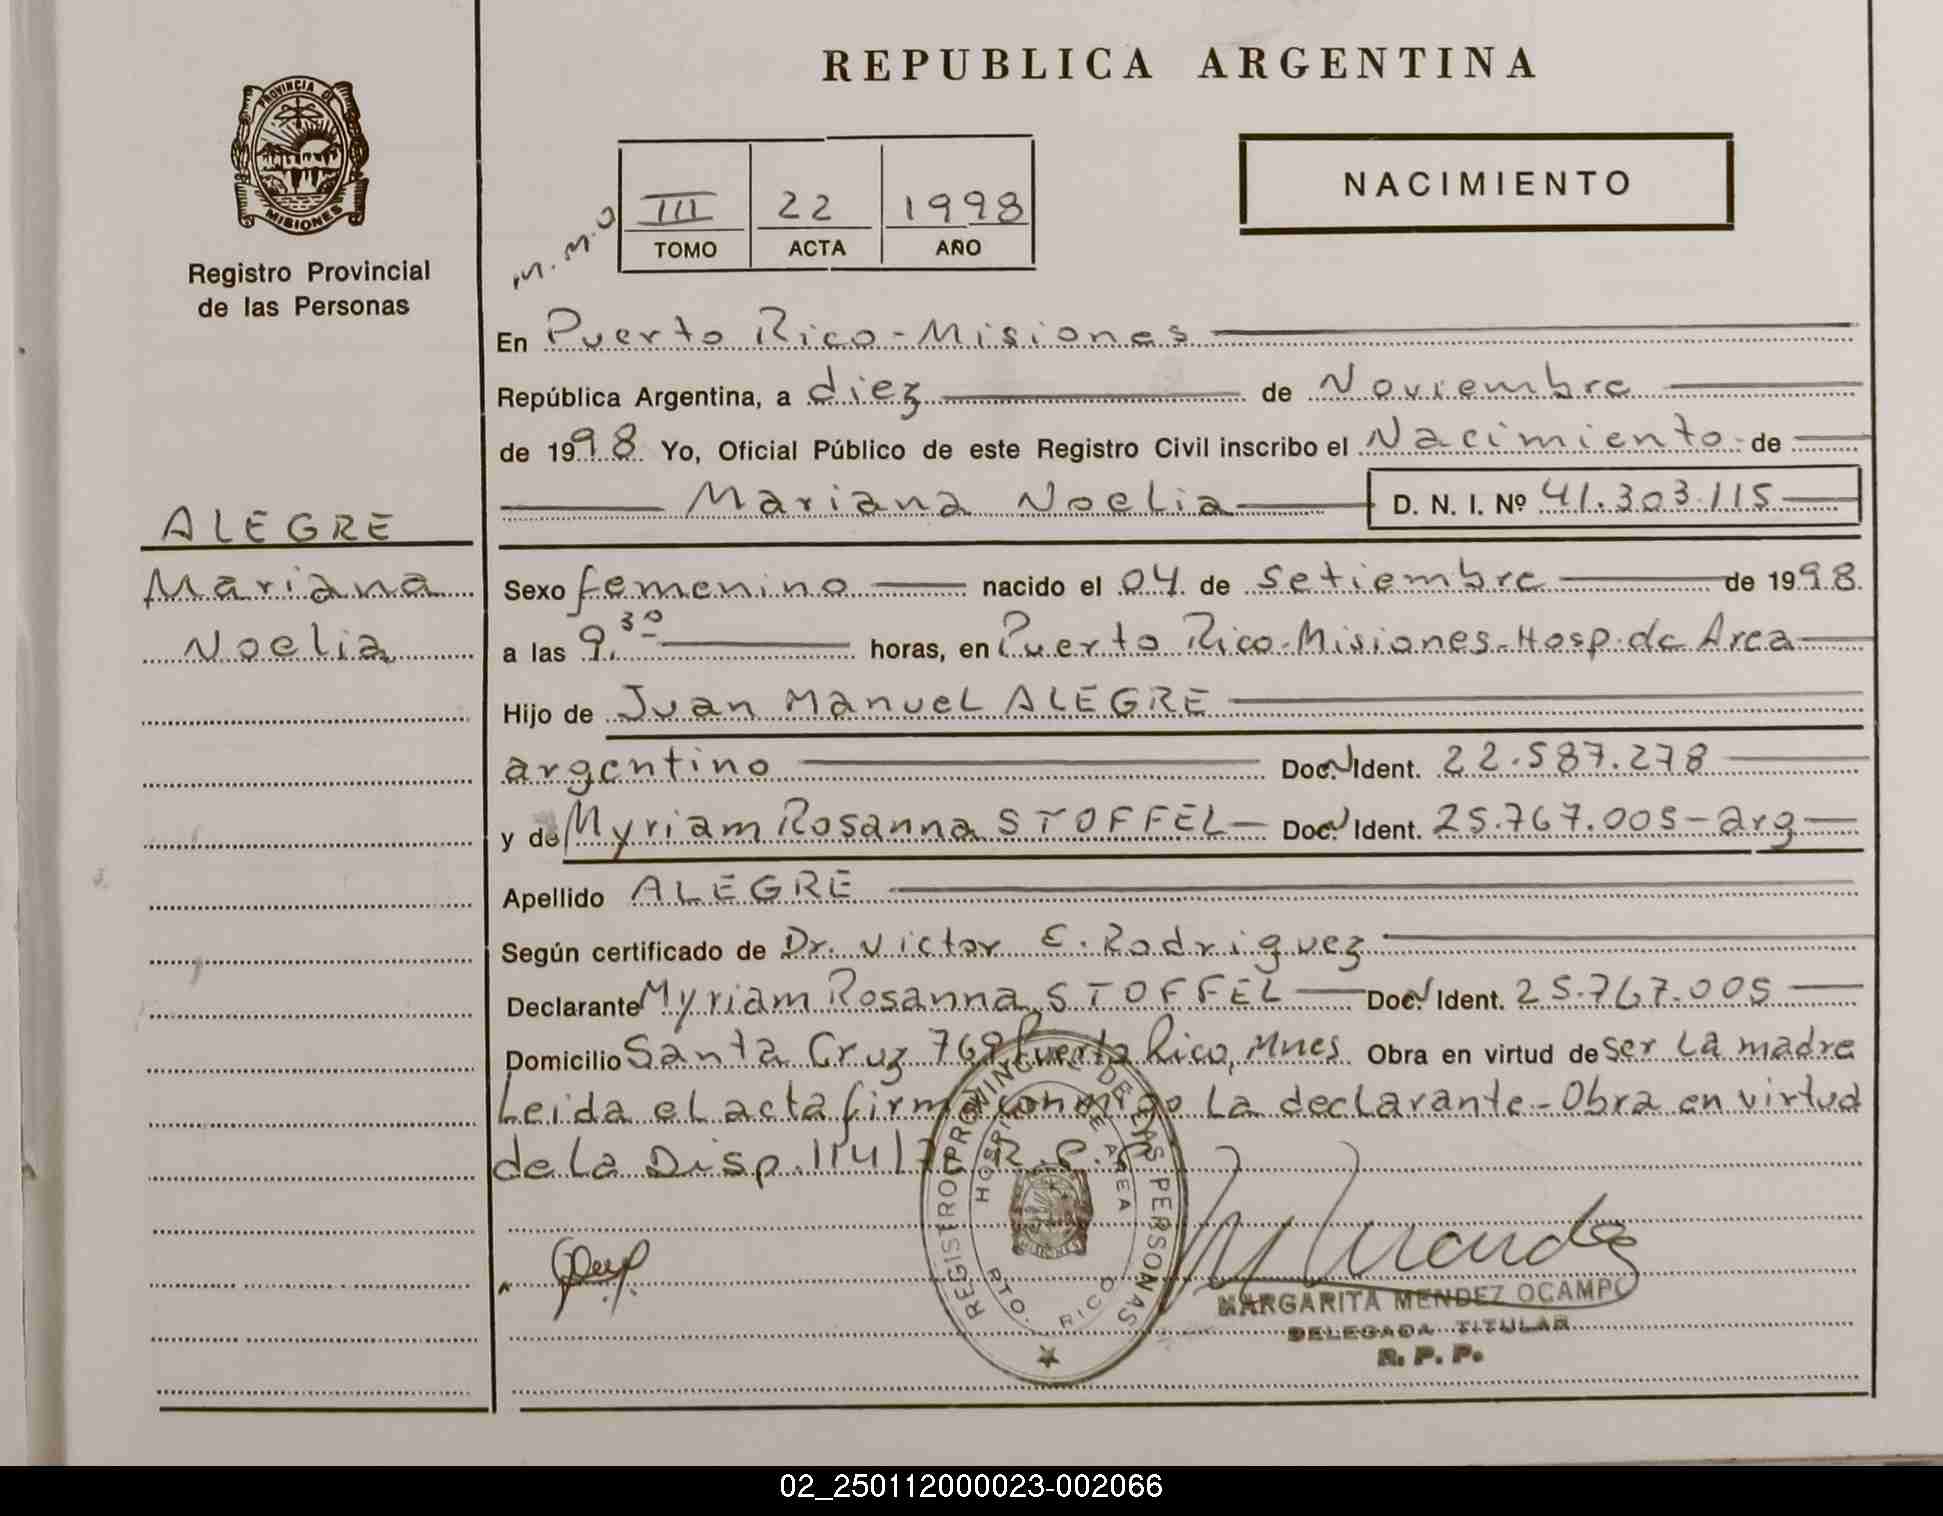 REPUBLICA ARGENTINA
PROVINCIA DE
MISIONES
Registro Provincial
de las Personas
NACIMIENTO
m.m.o
III 22 1998
TOMO ACTA AÑO
En Puerto Rico - Misiones
República Argentina, a diez de Noviembre
de 1998 Yo, Oficial Público de este Registro Civil inscribo el Nacimiento de
Mariana Noelia D. N. I. Nº 41.303.115
ALEGRE
Mariana
Noelia
Sexo femenino nacido el 04 de Setiembre de 1998
a las 9.30 horas, en Puerto Rico-Misiones-Hosp.de Area
Hijo de Juan Manuel ALEGRE
argentino Doc. Ident. 22.587.278
y de Myriam Rosanna STOFFEL Doc. Ident. 25.767.005-arg
Apellido ALEGRE
Según certificado de Dr. Victor E. Rodriguez
Declarante Myriam Rosanna STOFFEL Doc. Ident. 25.767.005
Domicilio Santa Cruz 769 Puerto Rico, Mnes Obra en virtud de ser la madre
Leida el acta firma conmigo la declarante-Obra en virtud
de la Disp. 114/7 R.P.P.
REGISTRO PROVINCIAL DE LAS PERSONAS
HOSPITAL DE AREA
PTO. RICO
MISIONES
MARGARITA MENDEZ OCAMPO
DELEGADA TITULAR
R. P. P.
02_250112000023-002066